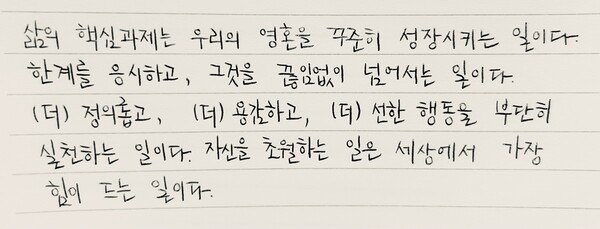 삶의 핵심과제는 우리의 영혼을 꾸준히 성장시키는 일이다.
한계를 응시하고, 그것을 끊임없이 넘어서는 일이다.
(더) 정의롭고, (더) 용감하고, (더) 선한 행동을 부단히
실천하는 일이다. 자신을 초월하는 일은 세상에서 가장
힘이 드는 일이다.